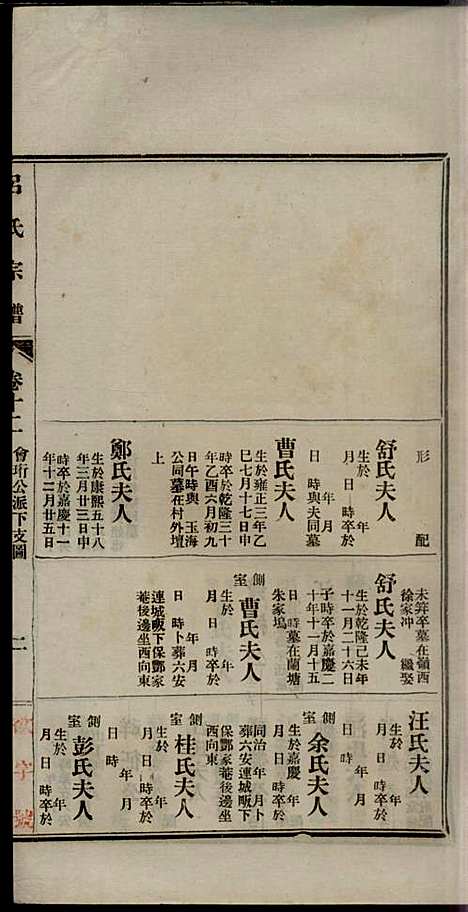 形 配
舒氏夫人
生於 年
月 日 時卒於
年 月
日 時與夫同墓
曹氏夫人
生於雍正三年乙
巳七月十七日申
時卒於乾隆三十
年乙酉六月初九
日午時與 玉海
公同墓在村外壇
上
鄭氏夫人
生於康熙五十八
年三月廿三日申
時卒於嘉慶十一
年十二月廿五日
未笄卒墓在嶺西
徐家冲 繼娶
舒氏夫人
生於乾隆己未年
十一月二十六日
子時卒於嘉慶二
十年十一月十五
日 時墓在蘭塘
朱家塢
側室曹氏夫人
生於 年
月 日 時卒於
年 月
日 時卜葬六安
連城畈下保鄷家
菴後邊坐西向東
汪氏夫人
生於 年
月 日 時卒於
年 月
日 時
側室余氏夫人
生於嘉慶 年
月 日 時卒於
同治 年 月卜
葬六安連城畈下
保鄷家菴後邊坐
西向東
側室桂氏夫人
生於 年
月 日 時卒於
年 月
日 時
側室彭氏夫人
生於 年
月 日 時卒於
呂氏宗譜 卷十二 會珩公派下支圖 二
字號